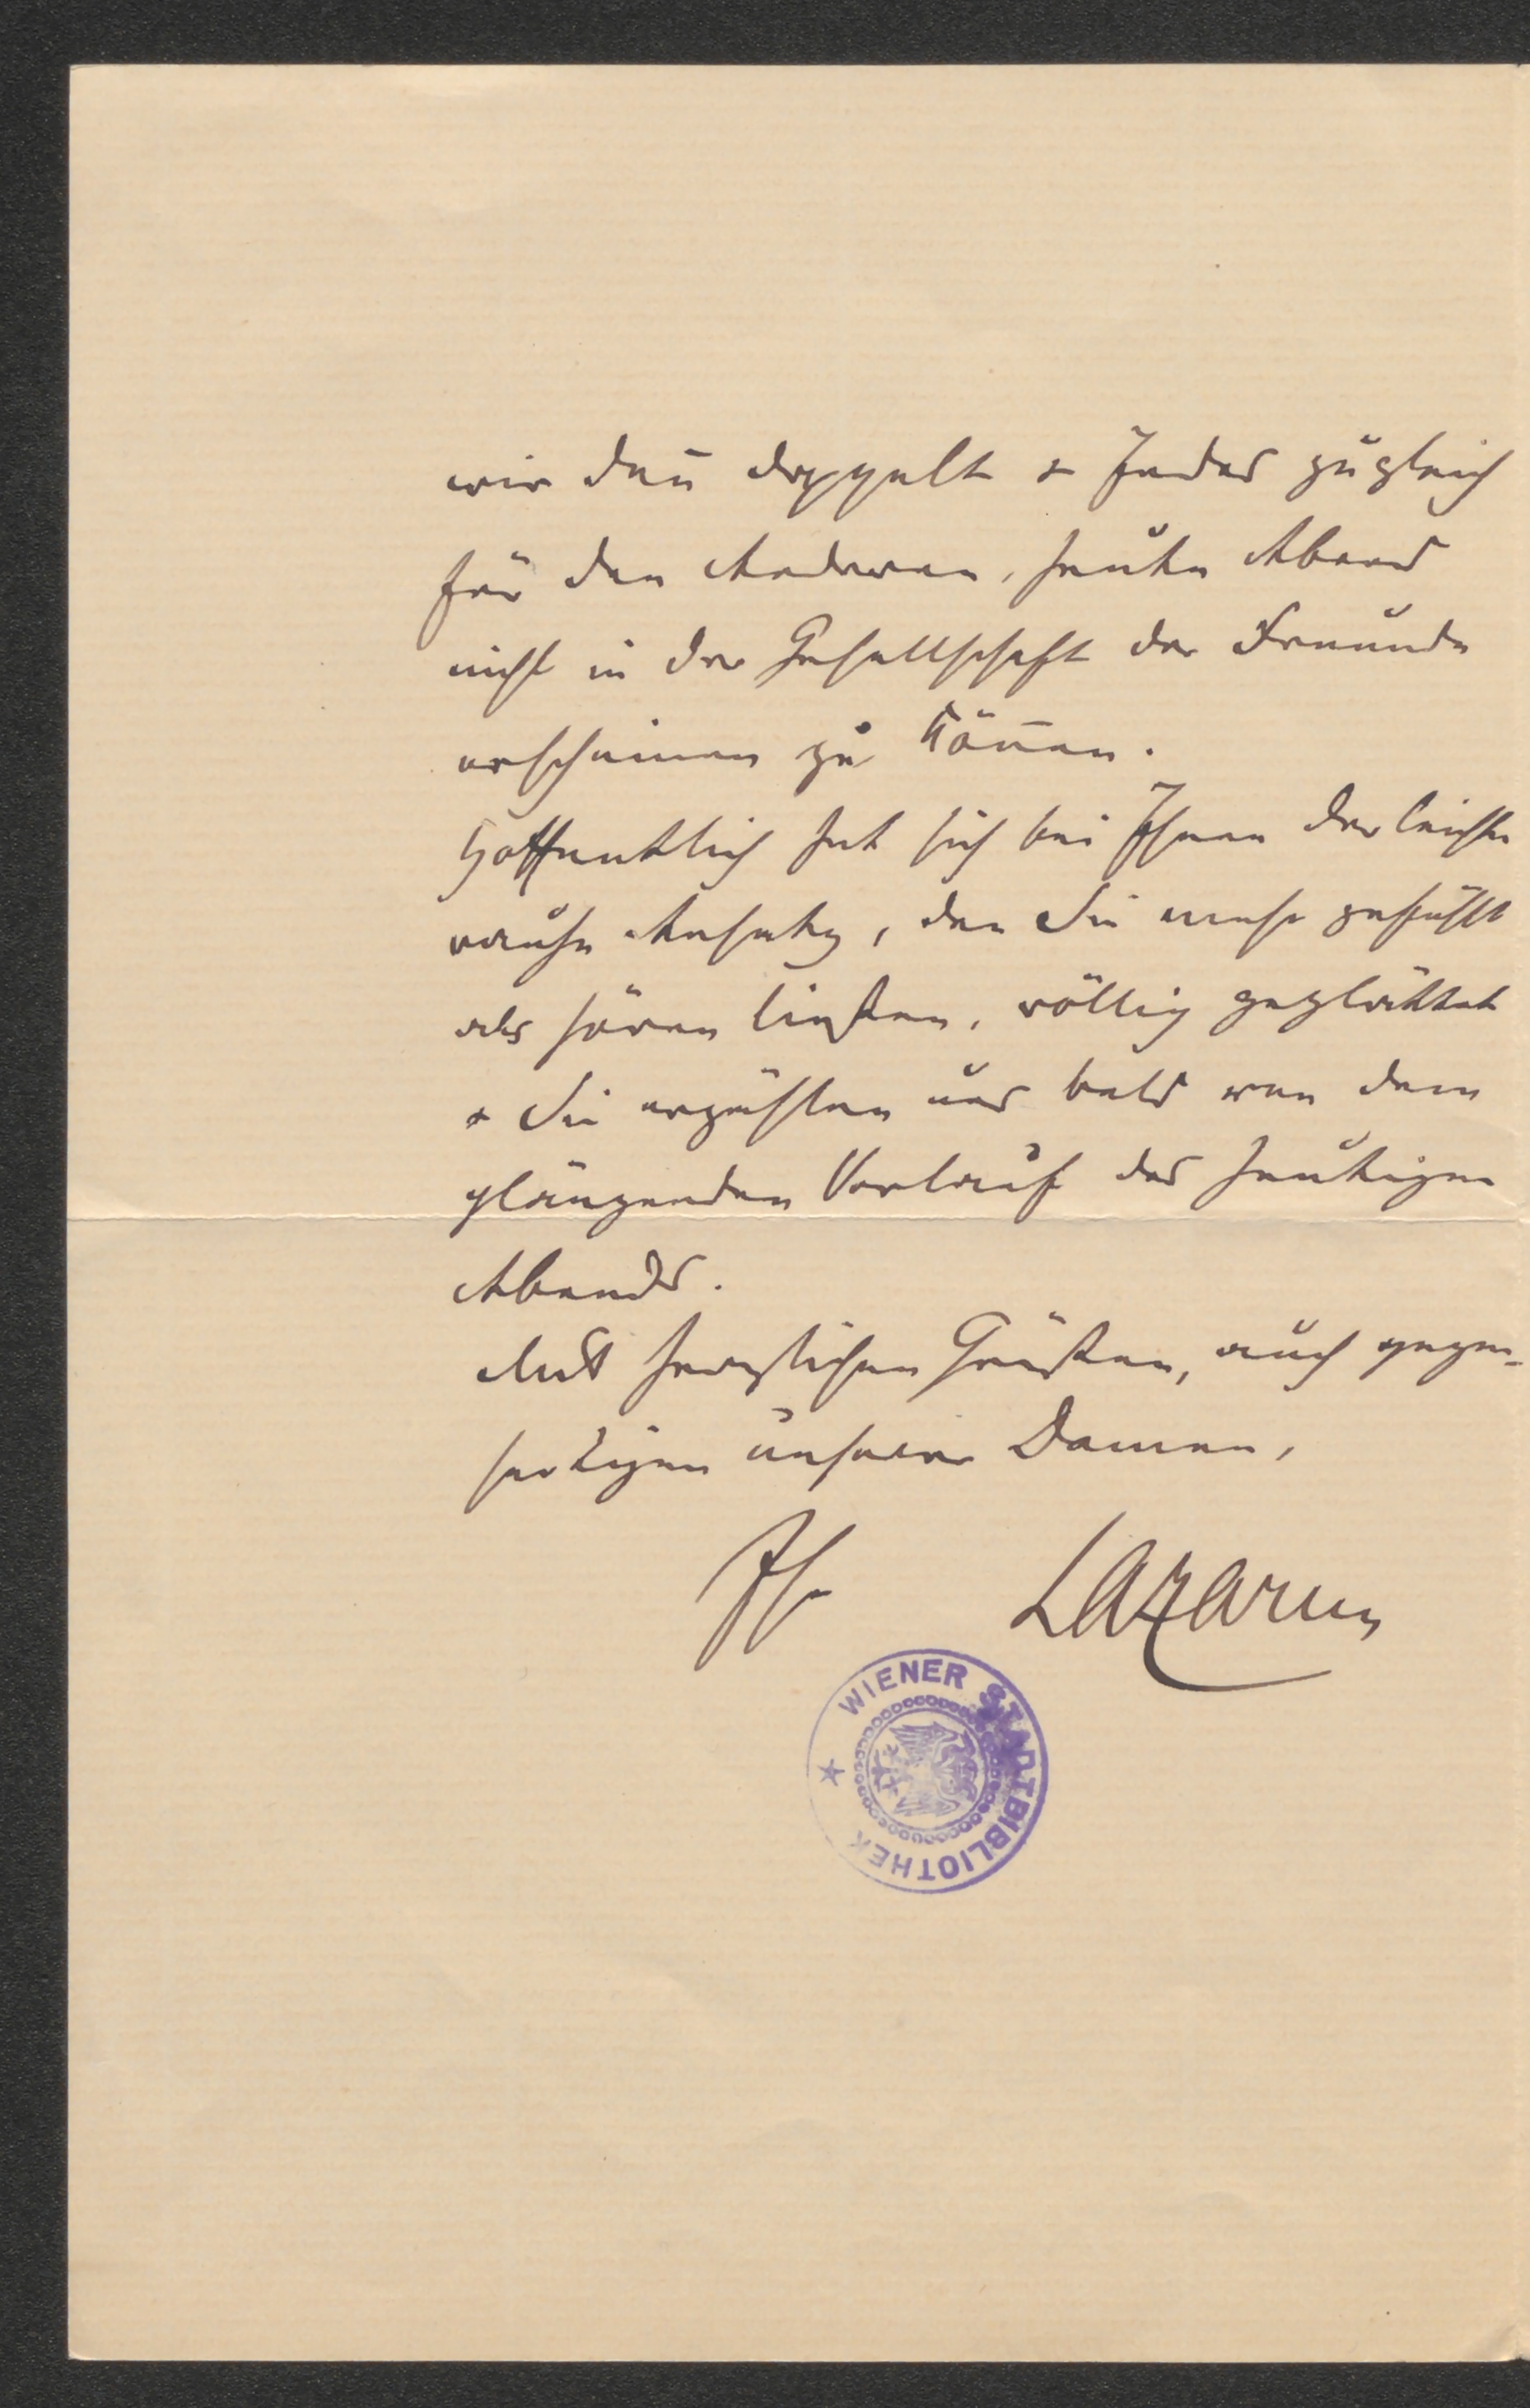 wir den̄ doppelt + Jeder zugleich
für den Anderen, heute Abend
nicht in der Gesellschaft der Freunde
erscheinen zu kön̄en.
Hoffentlich hat sich bei Ihnen der leichte
rauhe Ansatz, den Sie mehr gefühlt
als hören ließen, völlig geglättet
+ Sie erzählen uns bald von dem
glänzenden Verlauf des heutigen
Abends.
Mit herzlichen Grüßen, auch gegen-
seitigen unserer Damen,
Ihr Lazarus
WIENER STADTBIBLIOTHEK